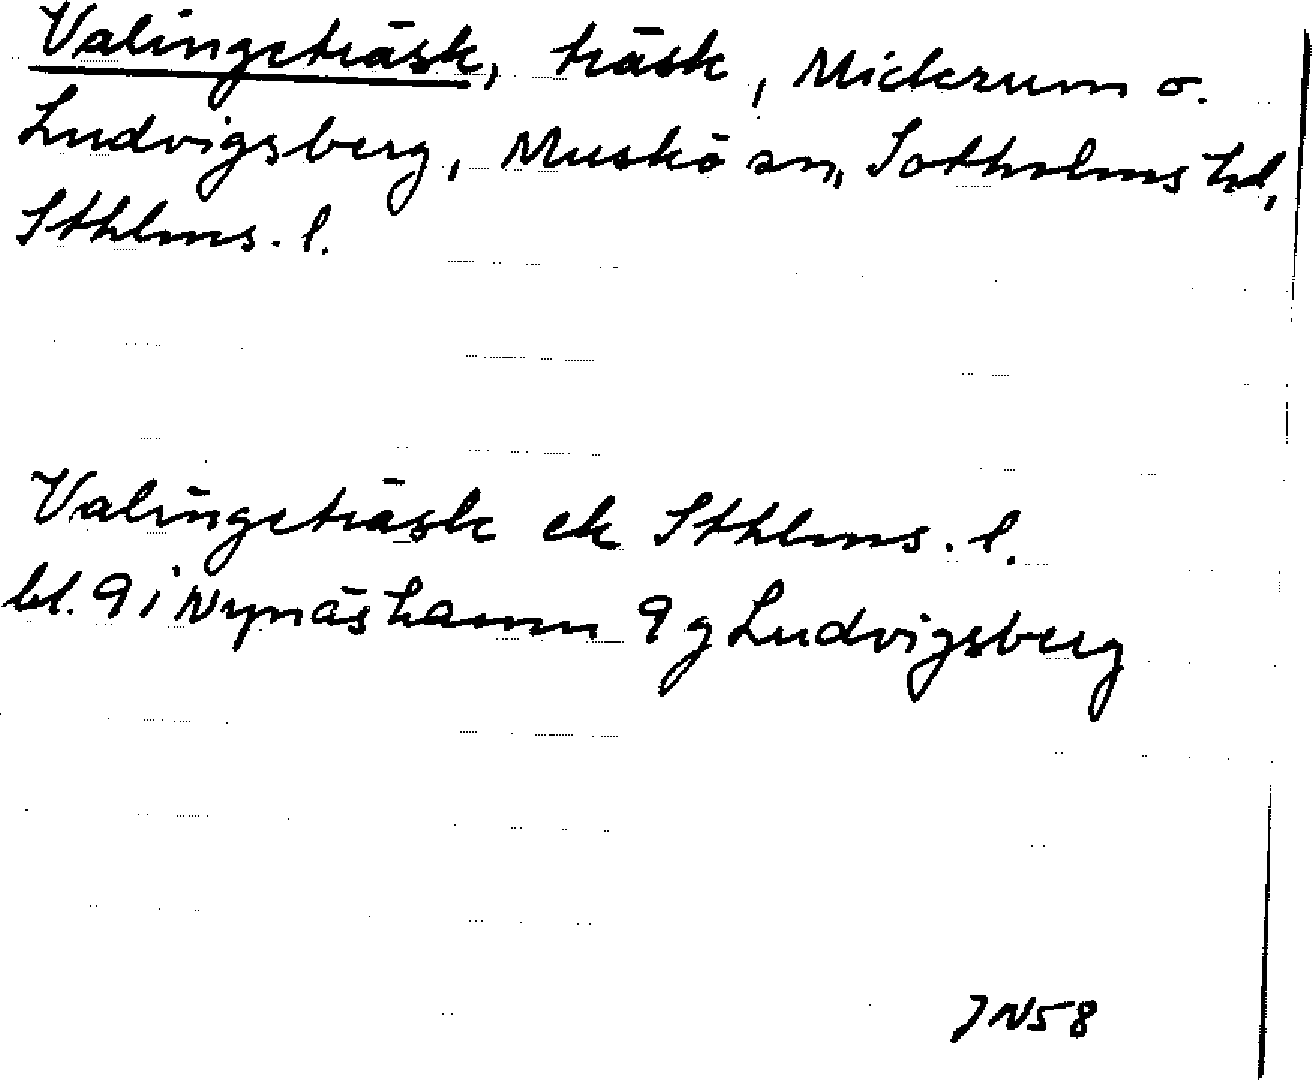 Valingeträsk, träsk, Mickrum o.
Ludvigsberg, Muskö sn, Sotholms hd,
Sthlms. l.
Valingeträsk ek Sthlms. l.
bl. 9 i Nynäshamn 9 g Ludvigsberg
JN58